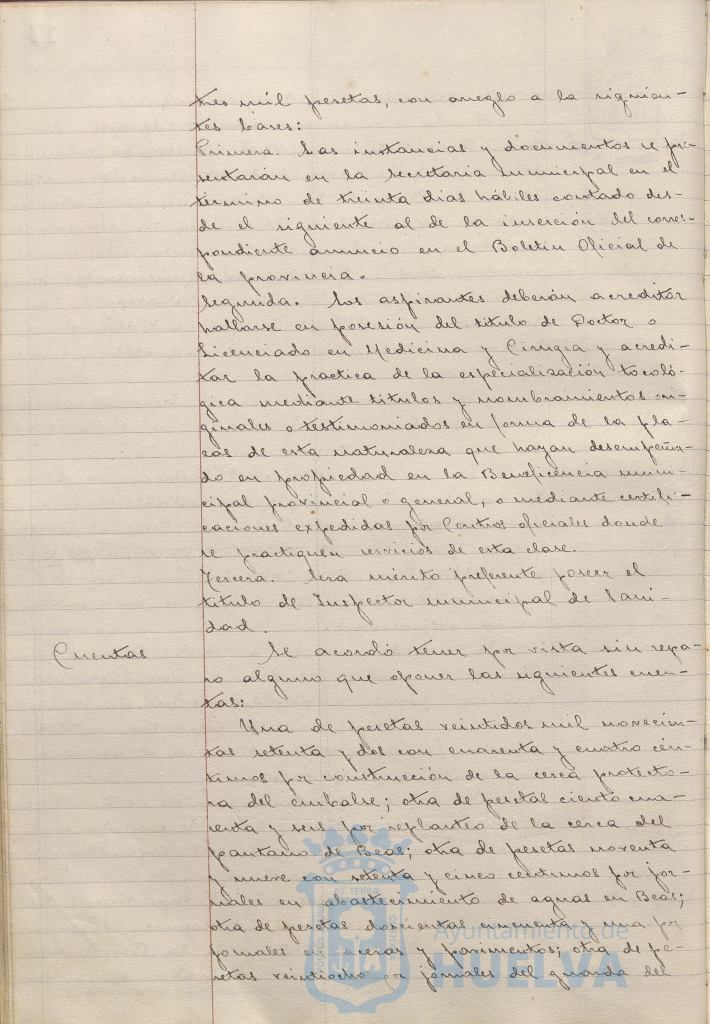 tres mil pesetas, con arreglo a la siguien-
tes bases:
Primera. Las instancias y documentos se pre-
sentarán en la Secretaria Municipal en el
término de treinta dias hábiles contado des-
de el siguiente al de la inserción del corres-
pondiente anuncio en el Boletin Oficial de
la provincia.
Segunda. Los aspirantes deberán acreditar
hallarse en posesión del titulo de Doctor o
Licenciado en Medicina y Cirugia y acredi-
tar la practica de la especialización tocoló-
gica mediante titulos y nombramientos ori-
ginales o testimoniados en forma de la pla-
zas de esta naturaleza que hayan desempeña-
do en propiedad en la Beneficencia muni-
cipal provincial o general, o mediante certifi-
caciones expedidas por Centros oficiales donde
se practiquen servicios de esta clase.
Tercera. Sera mérito preferente poseer el
titulo de Inspector municipal de Sani-
dad.
Cuentas
Se acordó tener por vista sin repa-
ro alguno que oponer las siguientes cuen-
tas:
Una de pesetas veintidos mil novecien-
tas setenta y dos con cuarenta y cuatro cén-
timos por construcción de la cerca protecto-
ra del embalse; otra de pesetas ciento cua-
renta y seis por replanteo de la cerca del
pantano de Beas; otra de pesetas noventa
y nueve con setenta y cinco centimos por jor-
nales en abastecimiento de aguas en Beas;
otra de pesetas doscientas y una por
jornales en aceras y pavimentos; otra de pe-
setas veintiocho por jornales del guarda del
Ayuntamiento de
HUELVA